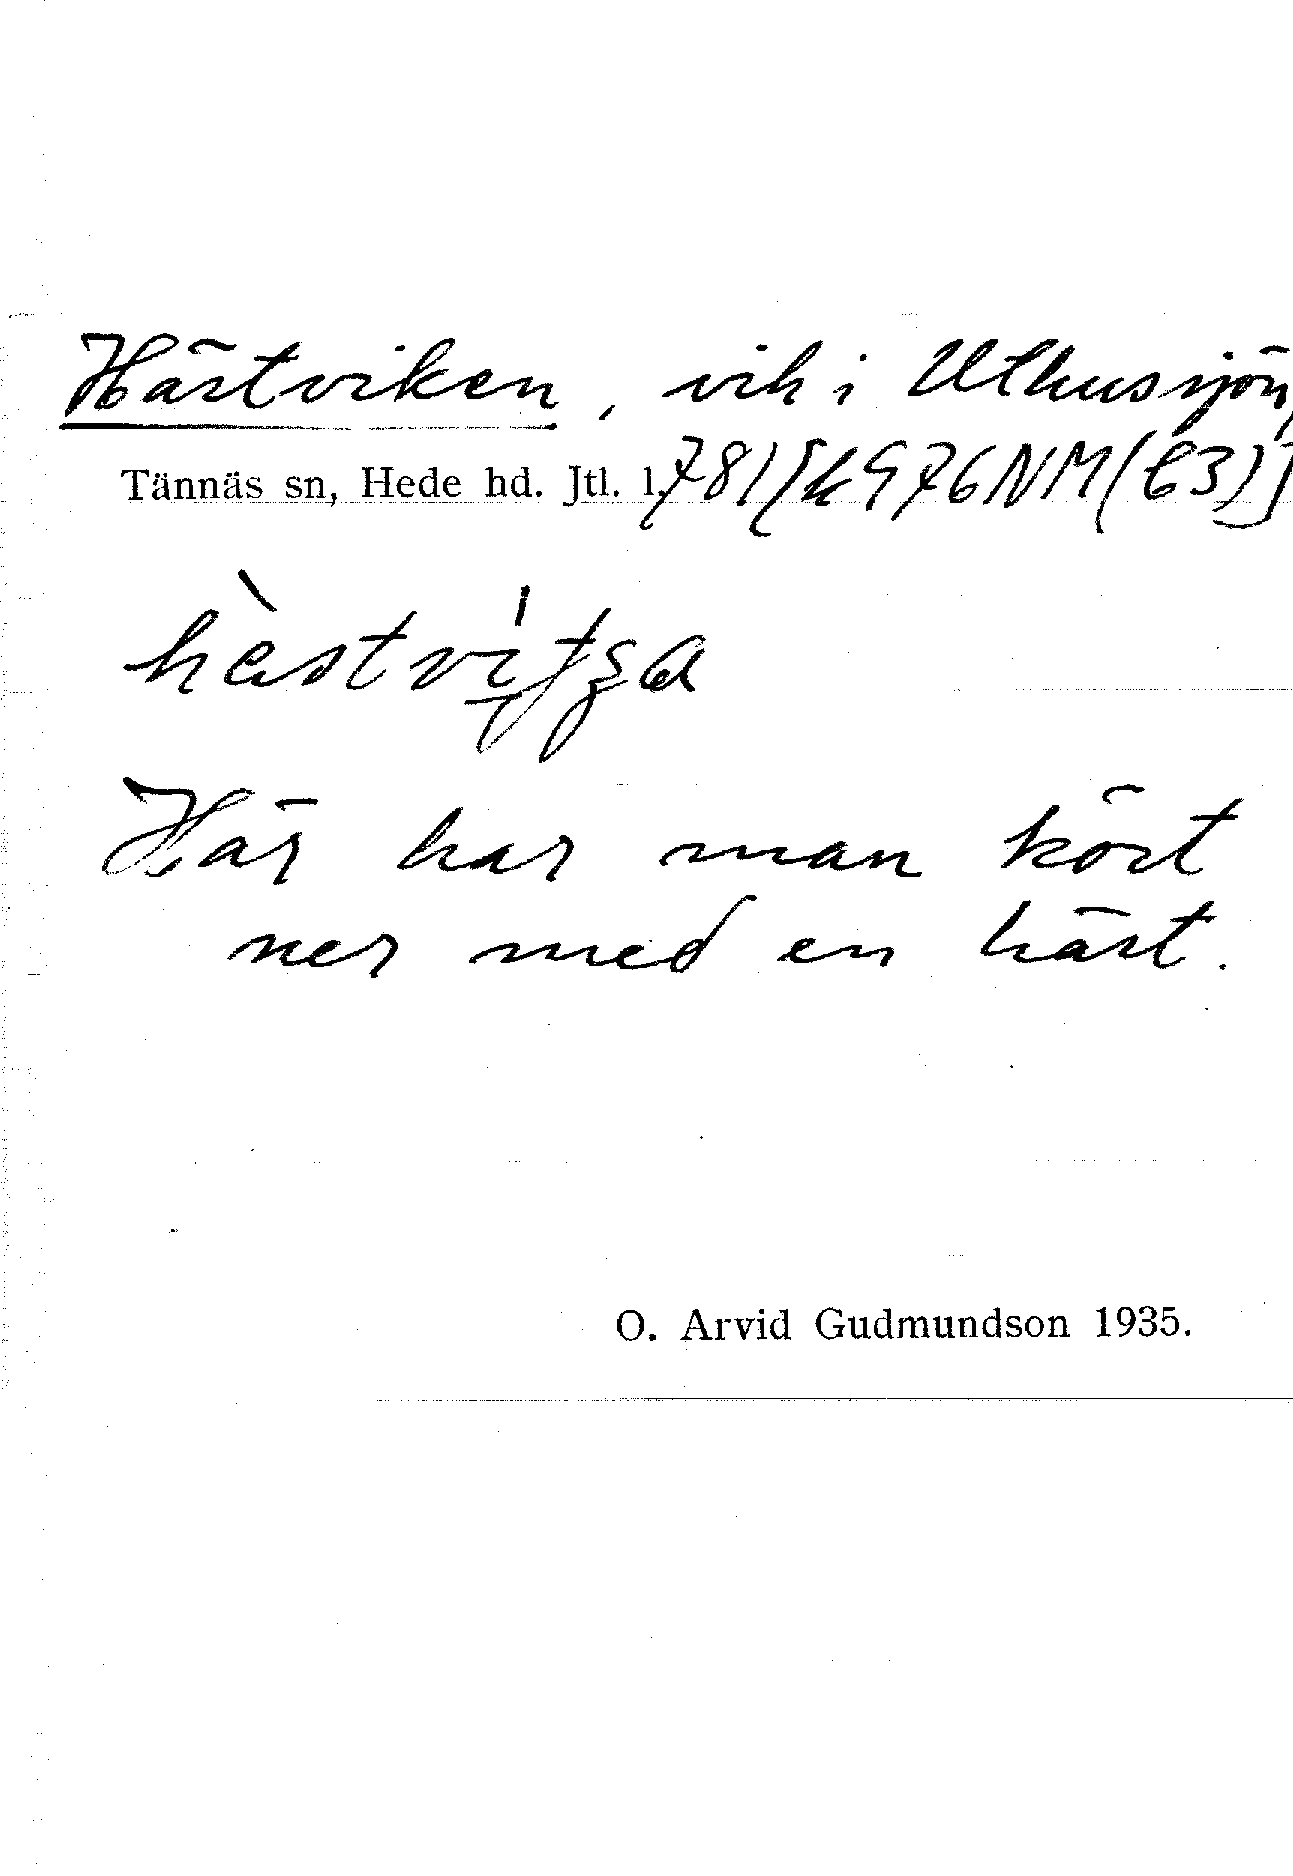 Hästviken, vik i Uthussjön,
Tännäs sn, Hede hd. Jtl. l. 781 [k976NM(63)]
Här har man kört
ner med en häst.
O. Arvid Gudmundson 1935.